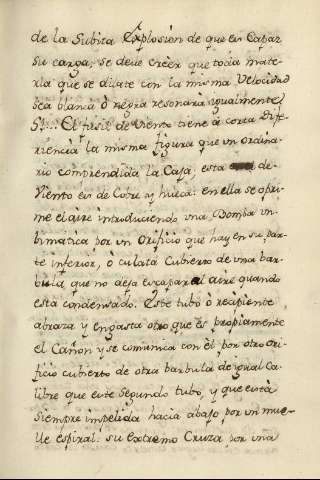 de la Subita Explosion de que es Capaz
su carga; se deve creer que toda mate-
ria que se dilate con la misma Velocidad
sea blanca ó negra resonara igualmente
5º... El fusil de Viento tiene á corta Dife-
riencia la misma figura que un ordina-
rio comprendida la Caja, esta de-
Viento es de Cobre y hueca: en ella se opri-
me el aire introduciendo una Bomba un-
bimatica por un Orificio que hay en su par-
te inferior, ó culata Cubierto de una bar-
bula que no deja escapar al aire quando
esta condensado. Este tubo ó recipiente
abraza y engasta otro que es propiamente
el Cañon y se comunica con él por otro ori-
ficio cubierto de otra barbula de igual Ca-
libre que este Segundo tubo, y que está
siempre impelida hacia abajo por un mue-
lle espiral: su extremo Cruza por una